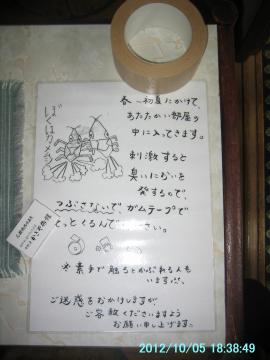 ぼくはカメムシ
春〜初夏にかけて、
あたたかい部屋の
中に入ってきます。
刺激すると
臭いにおいを
発するので、
つぶさないで、ガムテープで
とってくるんで下さい。
※素手で触るとかぶれる人も
います!!
ご迷惑をおかけしますが、
ご容赦くださいますよう
お願い申し上げます。
2012/10/05 18:38:49